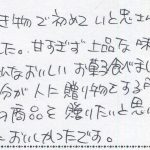 き物で初めていと思さ
た。甘すぎず上品な味
んなおいしいお菓子食べまし
分が人に贈り物とする
の商品を贈りたいと思い
においしかったです。